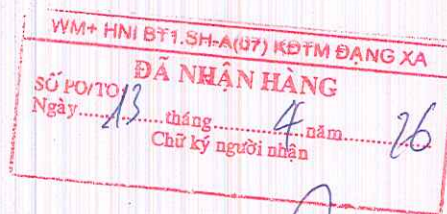 WM+ HNI BT1.SH-A(07) KĐTM ĐẶNG XA
ĐÃ NHẬN HÀNG
SỐ PO/TO
Ngày 13 tháng 4 năm 26
Chữ ký người nhận